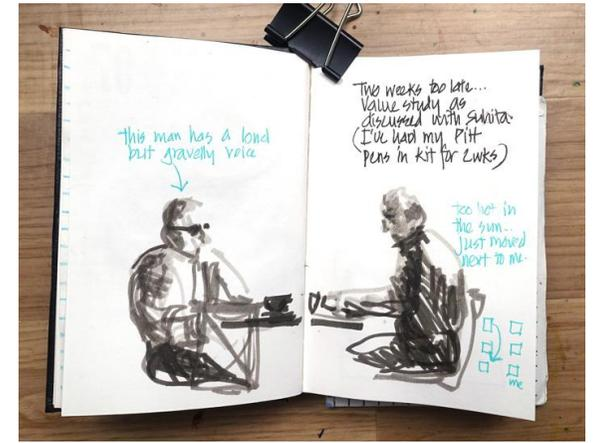 this man has a loud
but gravelly voice
Two weeks too late...
Value study as
discussed with Suhita.
(I've had my Pitt
pens in kit for 2wks)
too hot in
the sun...
just moved
next to me.
me